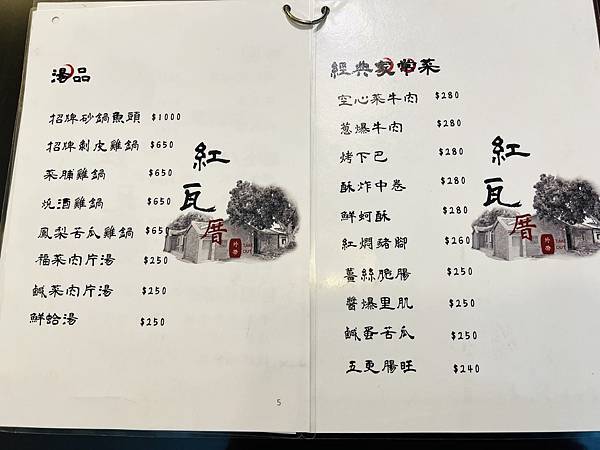 湯品
招牌砂鍋魚頭 $1000
招牌剝皮雞鍋 $650
菜脯雞鍋 $650
燒酒雞鍋 $650
鳳梨苦瓜雞鍋 $650
福菜肉片湯 $250
鹹菜肉片湯 $250
鮮蛤湯 $250
紅瓦厝
5
經典家常菜
空心菜牛肉 $280
蔥爆牛肉 $280
烤下巴 $280
酥炸中卷 $280
鮮蚵酥 $280
紅燜豬腳 $260
薑絲脆腸 $250
醬爆里肌 $250
鹹蛋苦瓜 $250
五更腸旺 $240
紅瓦厝